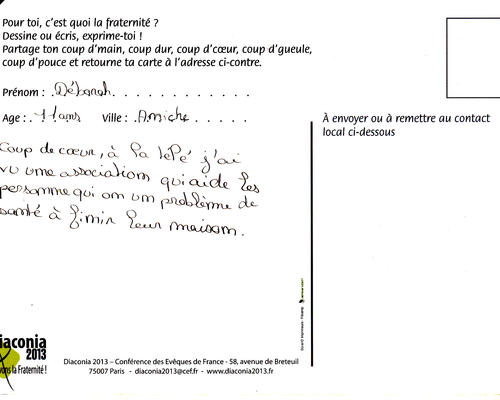 Pour toi, c'est quoi la fraternité ?
Dessine ou écris, exprime-toi !
Partage ton coup d'main, coup dur, coup d'cœur, coup d'gueule,
coup d'pouce et retourne ta carte à l'adresse ci-contre.
Prénom : Déborah
Age : 11ans Ville : Amiche
Coup de cœur, à la télé j'ai
vu une association qui aide les
personne qui on un problème de
santé à finir leur maison.
À envoyer ou à remettre au contact
local ci-dessous
Diaconia
2013
vons la Fraternité !
Diaconia 2013 – Conférence des Evêques de France - 58, avenue de Breteuil
75007 Paris - diaconia2013@cef.fr - www.diaconia2013.fr